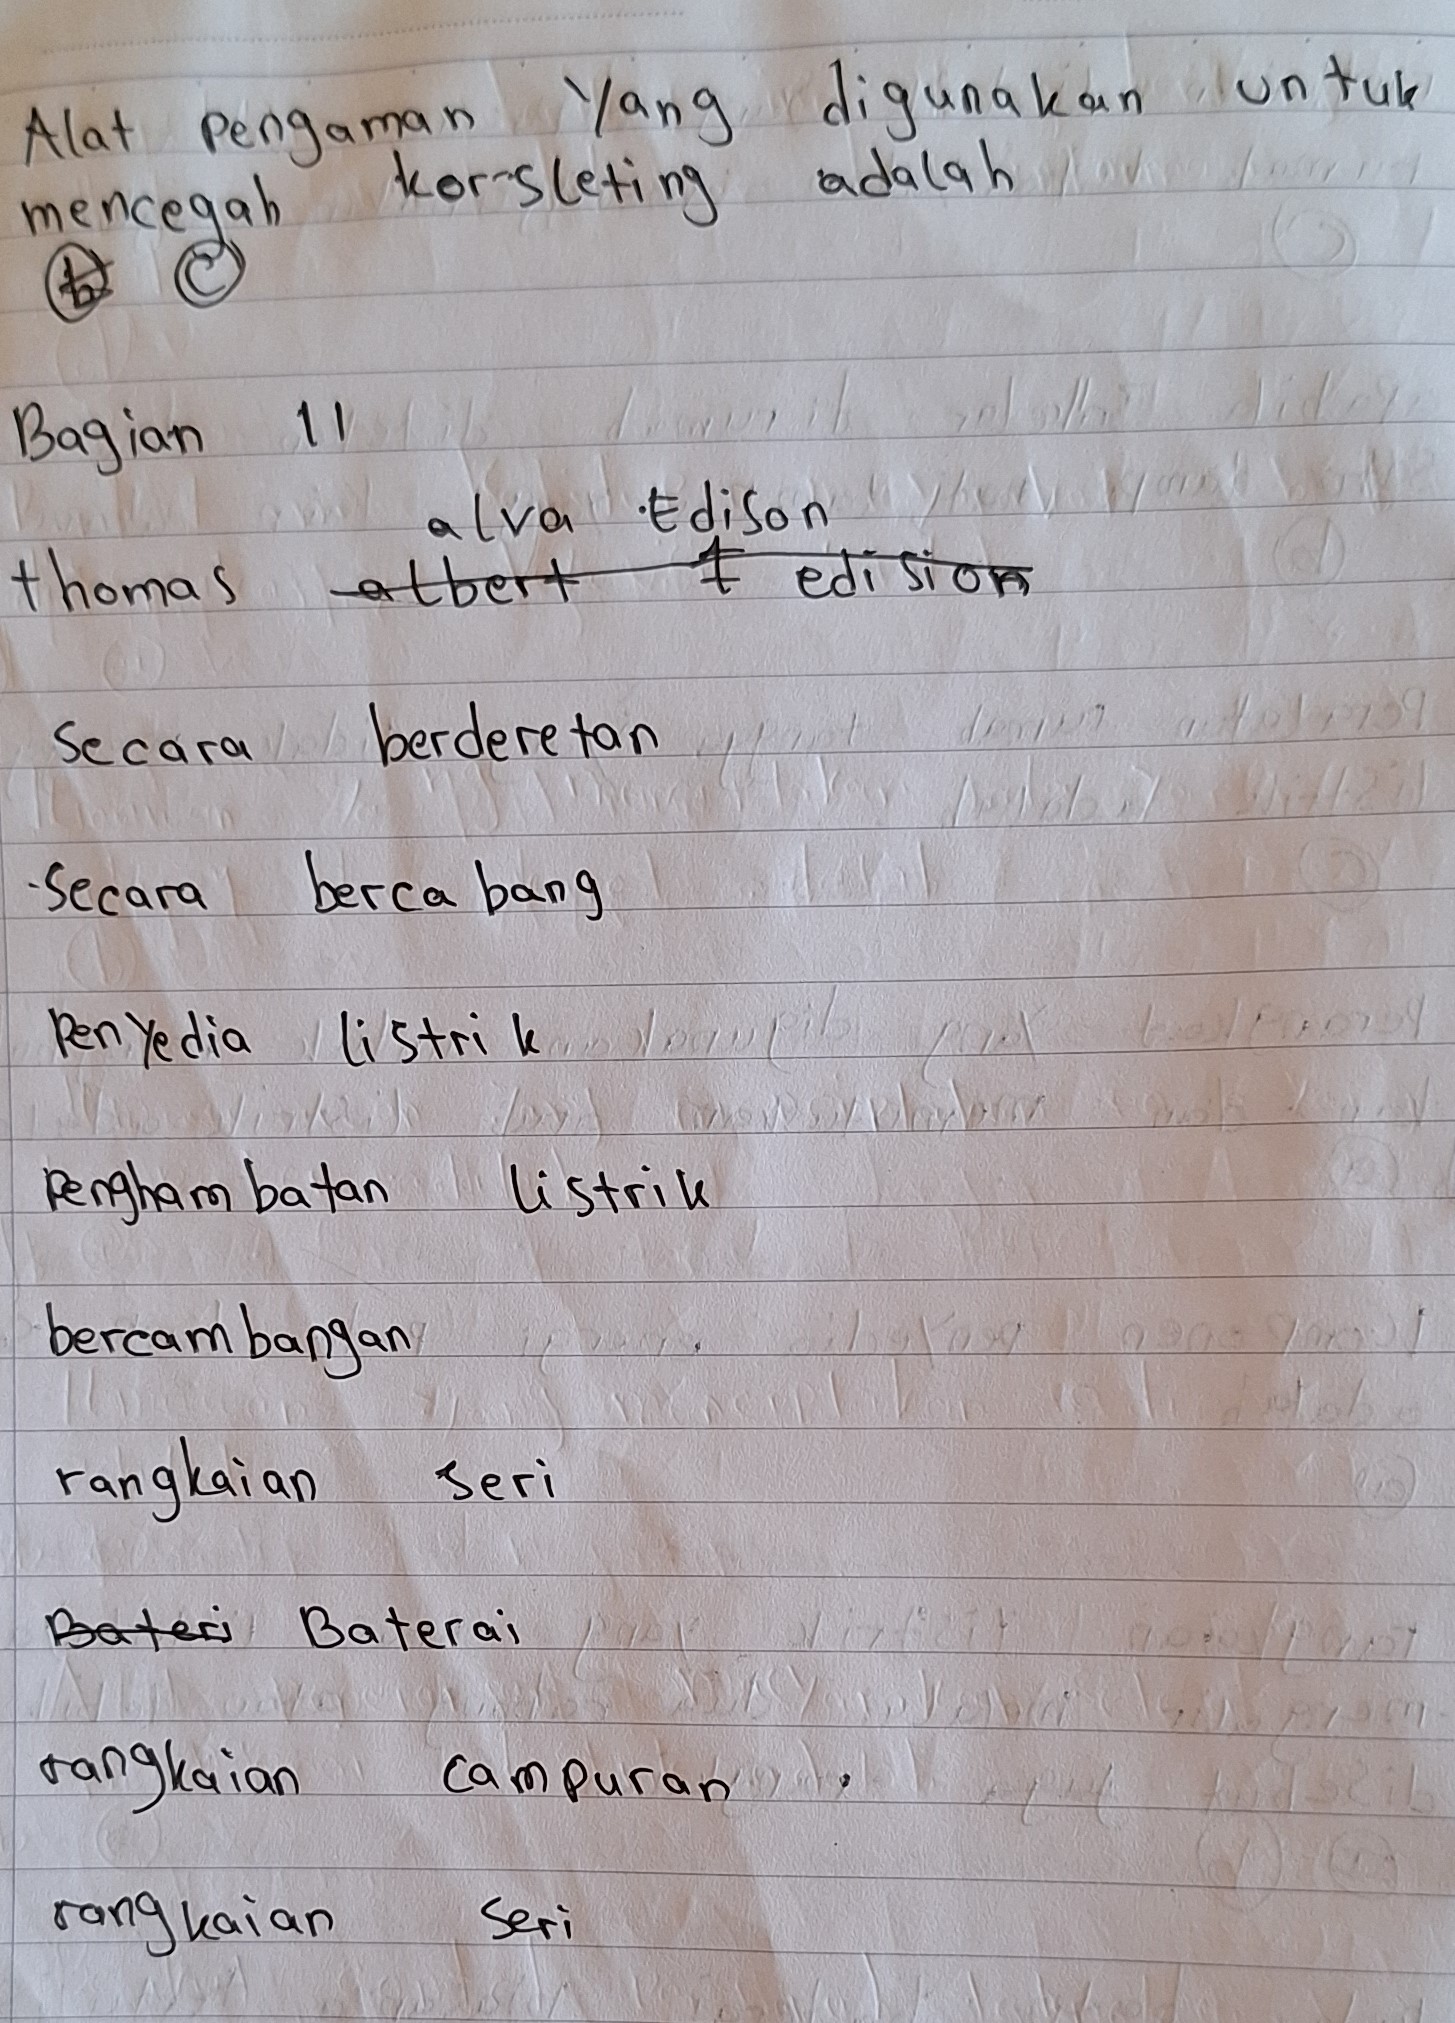 Alat pengaman yang digunakan untuk
mencegah korsleting adalah
b c
Bagian 11
alva Edison
thomas albert t edision
Secara berderetan
Secara bercabang
Penyedia listrik
Penghambatan listrik
bercambangan
rangkaian seri
Bateri Baterai
rangkaian campuran
rangkaian seri